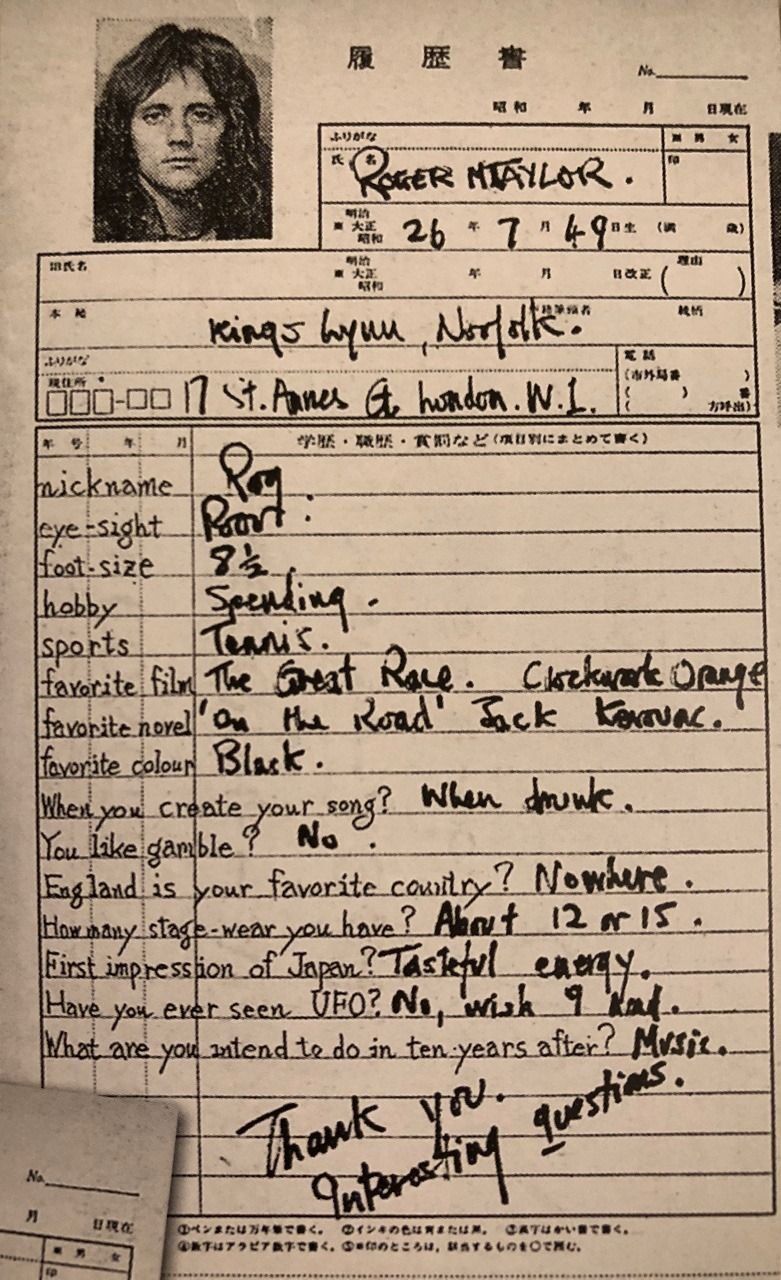 履歴書
No.
昭和 年 月 日現在
ふりがな ※ 男 女
氏名 ROGER M TAYLOR. 印
※ 明治 大正 昭和 26 年 7 月 49 日生 (満 歳)
旧氏名 ※ 明治 大正 昭和 年 月 日改正 理由 ( )
本籍 Kings Lynn, Norfolk. 続柄
ふりがな 電話
現住所 17 St. Annes Ct. London. W.1. (市外局番 ) ( ) 番 ( 方呼出)
年号 年 月 学歴・職歴・賞罰など(項目別にまとめて書く)
nickname Rog
eye-sight Poor.
foot-size 8½.
hobby Spending.
sports Tennis.
favorite film The Great Race. Clockwork Orange
favorite novel 'On the Road' Jack Kerouac.
favorite colour Black.
When you create your song? When drunk.
You like gamble? No.
England is your favorite country? Nowhere.
How many stage-wear you have? About 12 or 15.
First impression of Japan? Tasteful energy.
Have you ever seen UFO? No, wish I had.
What are you intend to do in ten years after? Music.
Thank you.
Interesting questions.
①ペンまたは万年筆で書く。 ②インキの色は青または黒。 ③文字はかい書で書く。
④数字はアラビア数字で書く。 ⑤※印のところは、該当するものを○で囲む。
No.
月 日現在
※ 男 女
印